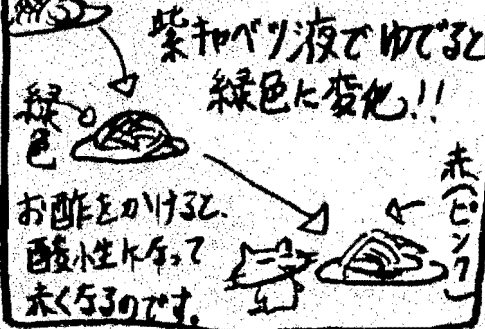 紫キャベツ液でゆでると
緑色に変化!!
緑色
お酢をかけると、
酸性になって
赤くなるのです。
赤(ピンク)